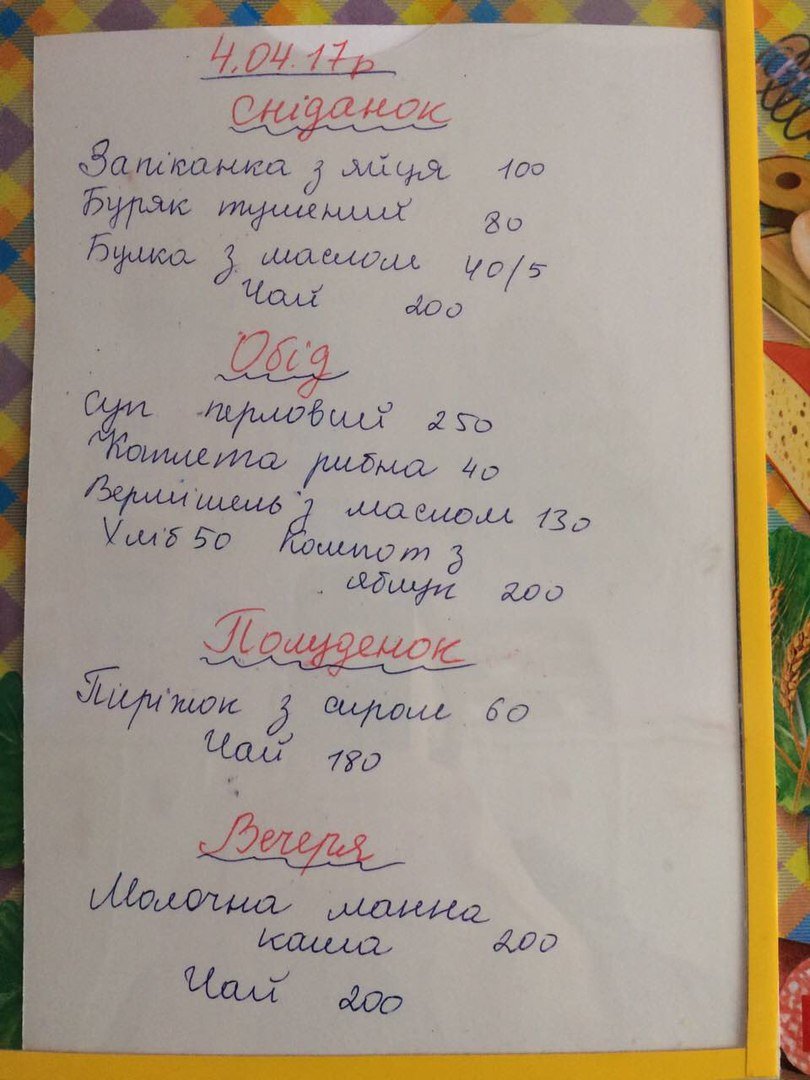 4.04.17р
Сніданок
Запіканка з яйця 100
Буряк тушений 80
Булка з маслом 40/5
Чай 200
Обід
Суп перловий 250
Котлета рибна 40
Вермішель з маслом 130
Хліб 50 Компот з
яблук 200
Полуденок
Пиріжок з сиром 60
Чай 180
Вечеря
Молочна манна
каша 200
Чай 200